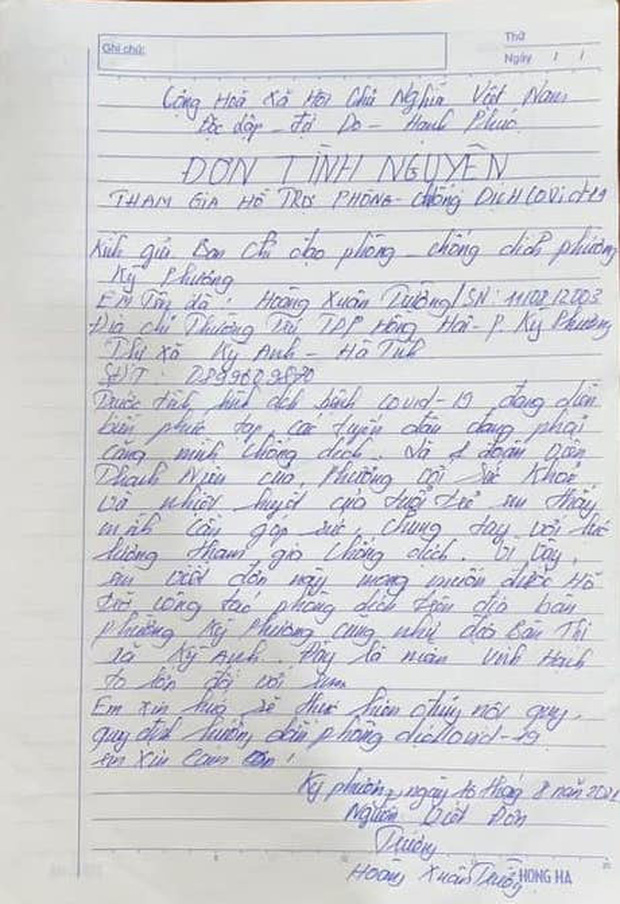 Ghi chú:
Thứ
Ngày / /
Cộng Hoà Xã Hội Chủ Nghĩa Việt Nam
Độc dập - Tự Do - Hạnh Phúc
ĐƠN TÌNH NGUYỆN
THAM GIA HỖ TRỢ PHÒNG - CHỐNG DỊCH COVID 19
Kính gửi Ban chỉ đạo phòng - chống dịch phường
Kỳ Phương
Em Tên là: Hoàng Xuân Trường / SN: 11/08/2003
Địa chỉ Thường Trú TDP Hồng Hải - P. Kỳ Phương
Thị xã Kỳ Anh - Hà Tĩnh
SĐT: 0899609870
Trước tình hình dịch bệnh covid-19 đang diễn
biến phức tạp, các tuyến đầu đang phải
căng mình chống dịch. Là 1 đoàn viên
Thanh Niên của Phường với Sức Khoẻ
và nhiệt huyết của tuổi trẻ em thấy
mình cần góp sức, chung tay với lực
lượng tham gia chống dịch. Vì vậy,
em viết đơn này mong muốn được Hỗ
trợ công tác phòng dịch trên địa bàn
phường Kỳ Phương cũng như địa Bàn Thị
xã Kỳ Anh. Đây là niềm vinh Hạnh
to lớn đối với em
Em xin hứa sẽ thực hiện đúng nội quy,
quy định hướng dẫn phòng dịch covid-19
em xin cảm ơn!
Kỳ phương, ngày 10 tháng 8 năm 2021
Người Viết Đơn
Trường
Hoàng Xuân Trường
HONG HA